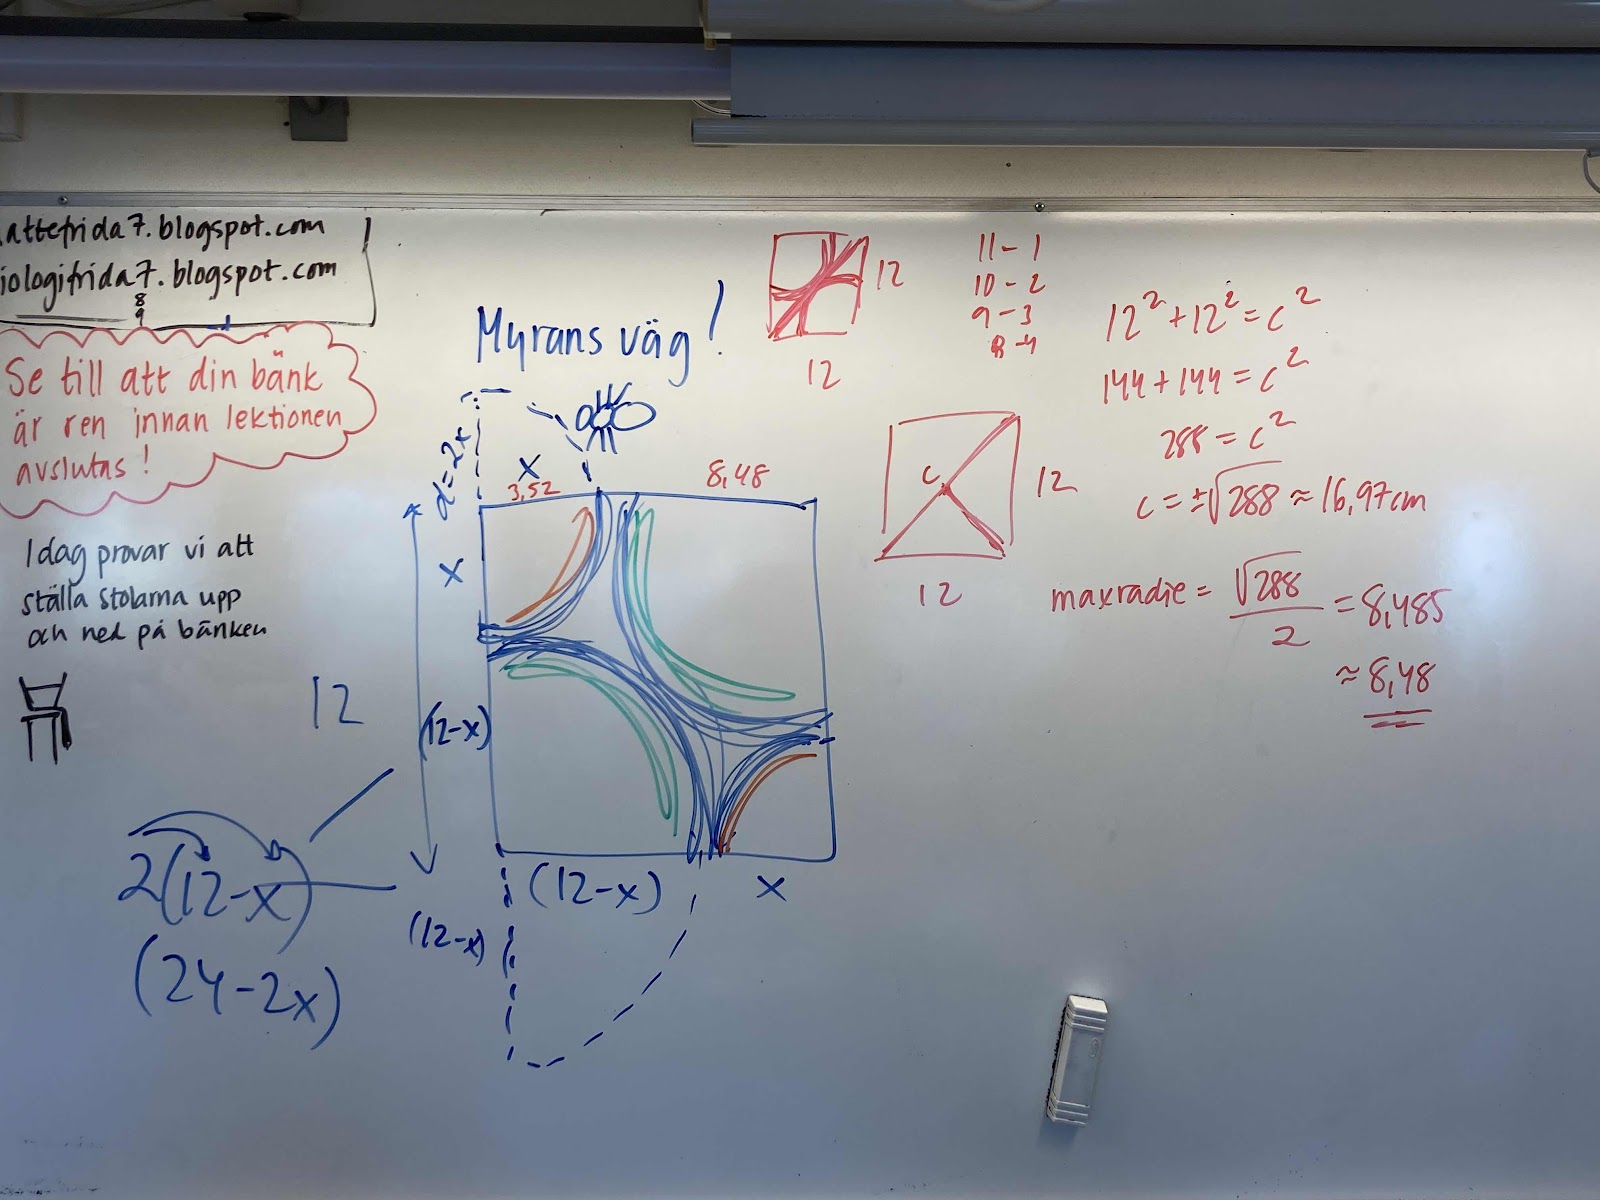 attefrida7.blogspot.com
iologifrida7.blogspot.com
8
9
Se till att din bänk
är ren innan lektionen
avslutas!
Idag provar vi att
ställa stolarna upp
och ned på bänken
Myrans väg!
d=2x
x
3,52
8,48
x
12
(12-x)
(12-x)
x
(12-x)
2(12-x)
(24-2x)
12
12
11-1
10-2
9-3
8-4
c
12
12
12²+12²=c²
144+144=c²
288=c²
c=±√288≈16,97cm
maxradie=√288/2=8,485
≈8,48